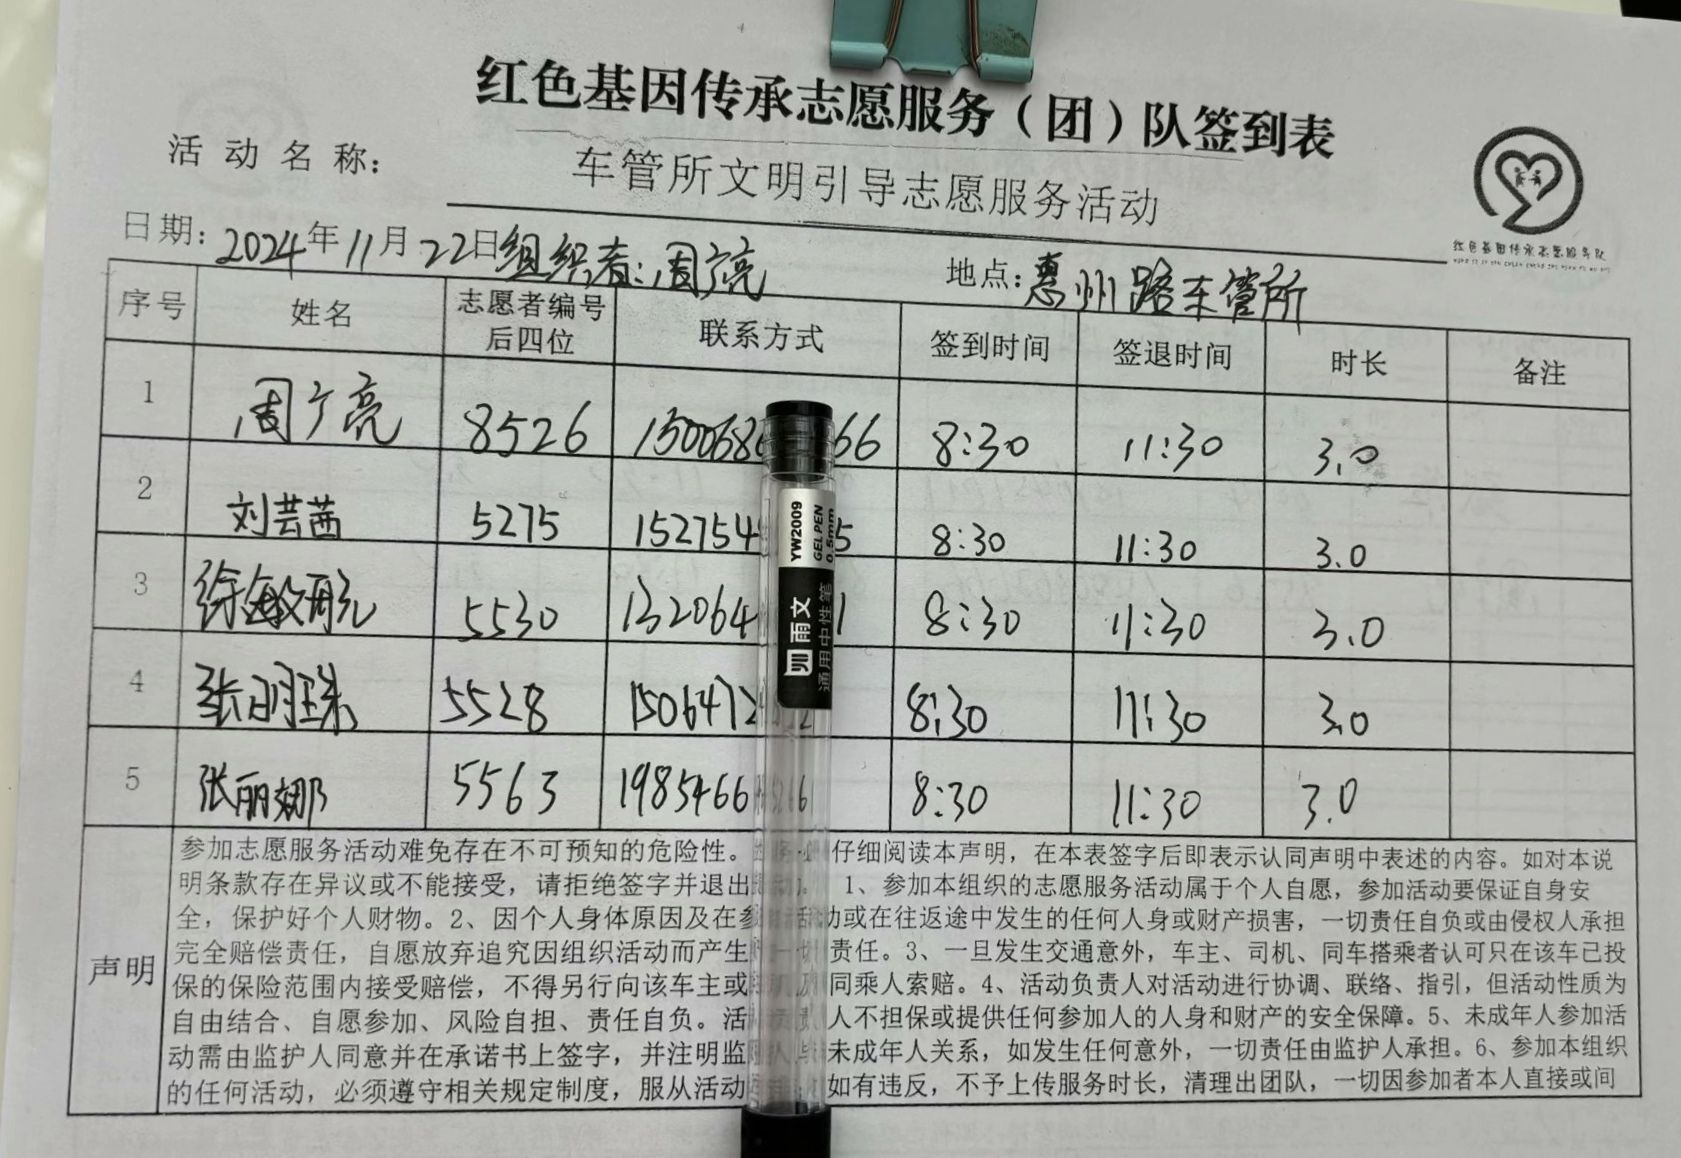 红色基因传承志愿服务（团）队签到表
活动名称： 车管所文明引导志愿服务活动
红色基因传承志愿服务队
日期：2024年11月22日 组织者：周广亮 地点：惠州路车管所
序号 姓名 志愿者编号后四位 联系方式 签到时间 签退时间 时长 备注
1 周广亮 8526 1500686 66 8:30 11:30 3.0
2 刘芸茜 5275 1527544 5 8:30 11:30 3.0
3 徐敏 5530 132064 1 8:30 11:30 3.0
4 张明珠 5528 1506472 2 8:30 11:30 3.0
5 张丽娜 5563 1985466 66 8:30 11:30 3.0
YW2009
GEL PEN
0.5mm
雨文
通用中性笔
声明
参加志愿服务活动难免存在不可预知的危险性。 仔细阅读本声明，在本表签字后即表示认同声明中表述的内容。如对本说
明条款存在异议或不能接受，请拒绝签字并退出 1、参加本组织的志愿服务活动属于个人自愿，参加活动要保证自身安
全，保护好个人财物。2、因个人身体原因及在参 活动或在往返途中发生的任何人身或财产损害，一切责任自负或由侵权人承担
完全赔偿责任，自愿放弃追究因组织活动而产生 一切责任。3、一旦发生交通意外，车主、司机、同车搭乘者认可只在该车已投
保的保险范围内接受赔偿，不得另行向该车主或 同乘人索赔。4、活动负责人对活动进行协调、联络、指引，但活动性质为
自由结合、自愿参加、风险自担、责任自负。活 人不担保或提供任何参加人的人身和财产的安全保障。5、未成年人参加活
动需由监护人同意并在承诺书上签字，并注明监 未成年人关系，如发生任何意外，一切责任由监护人承担。6、参加本组织
的任何活动，必须遵守相关规定制度，服从活动 如有违反，不予上传服务时长，清理出团队，一切因参加者本人直接或间